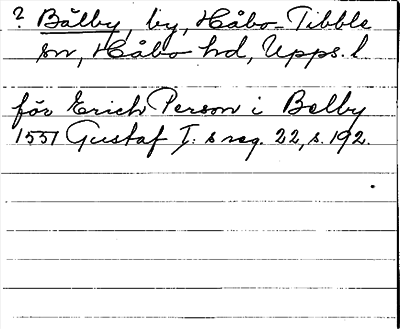 ? Bålby, by, Håbo-Tibble
sn, Håbo hd, Upps. l
för Erich Person i Balby
1551 Gustaf I: s reg. 22, s. 192.